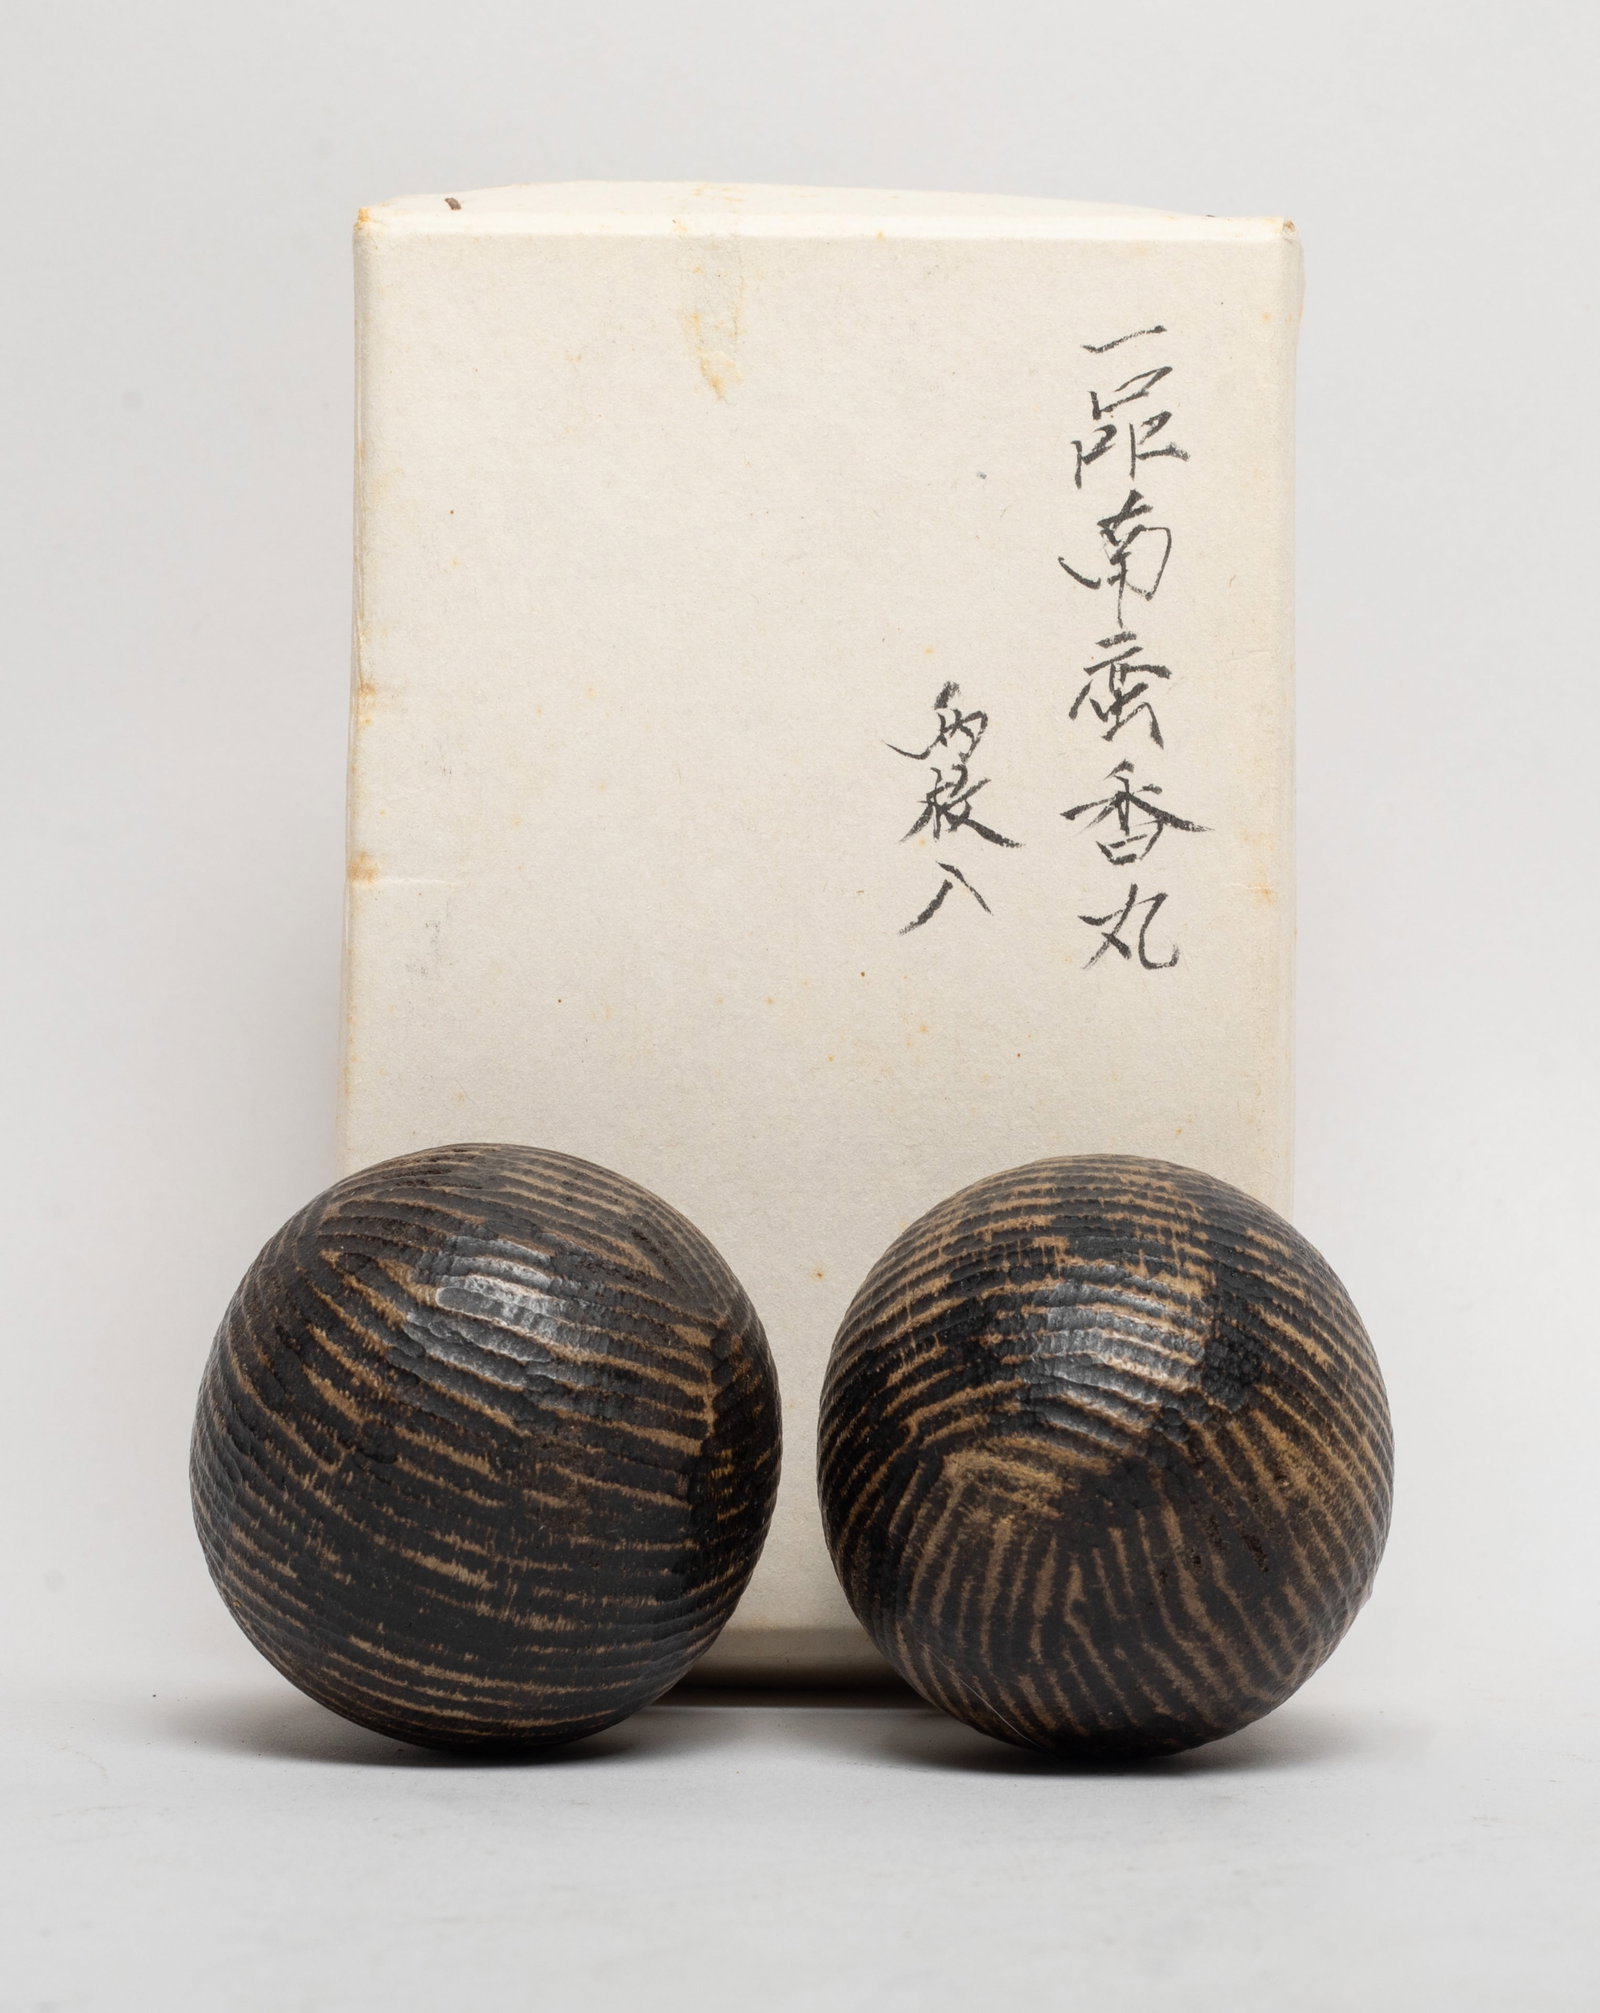 一品南蛮香丸
両枚入